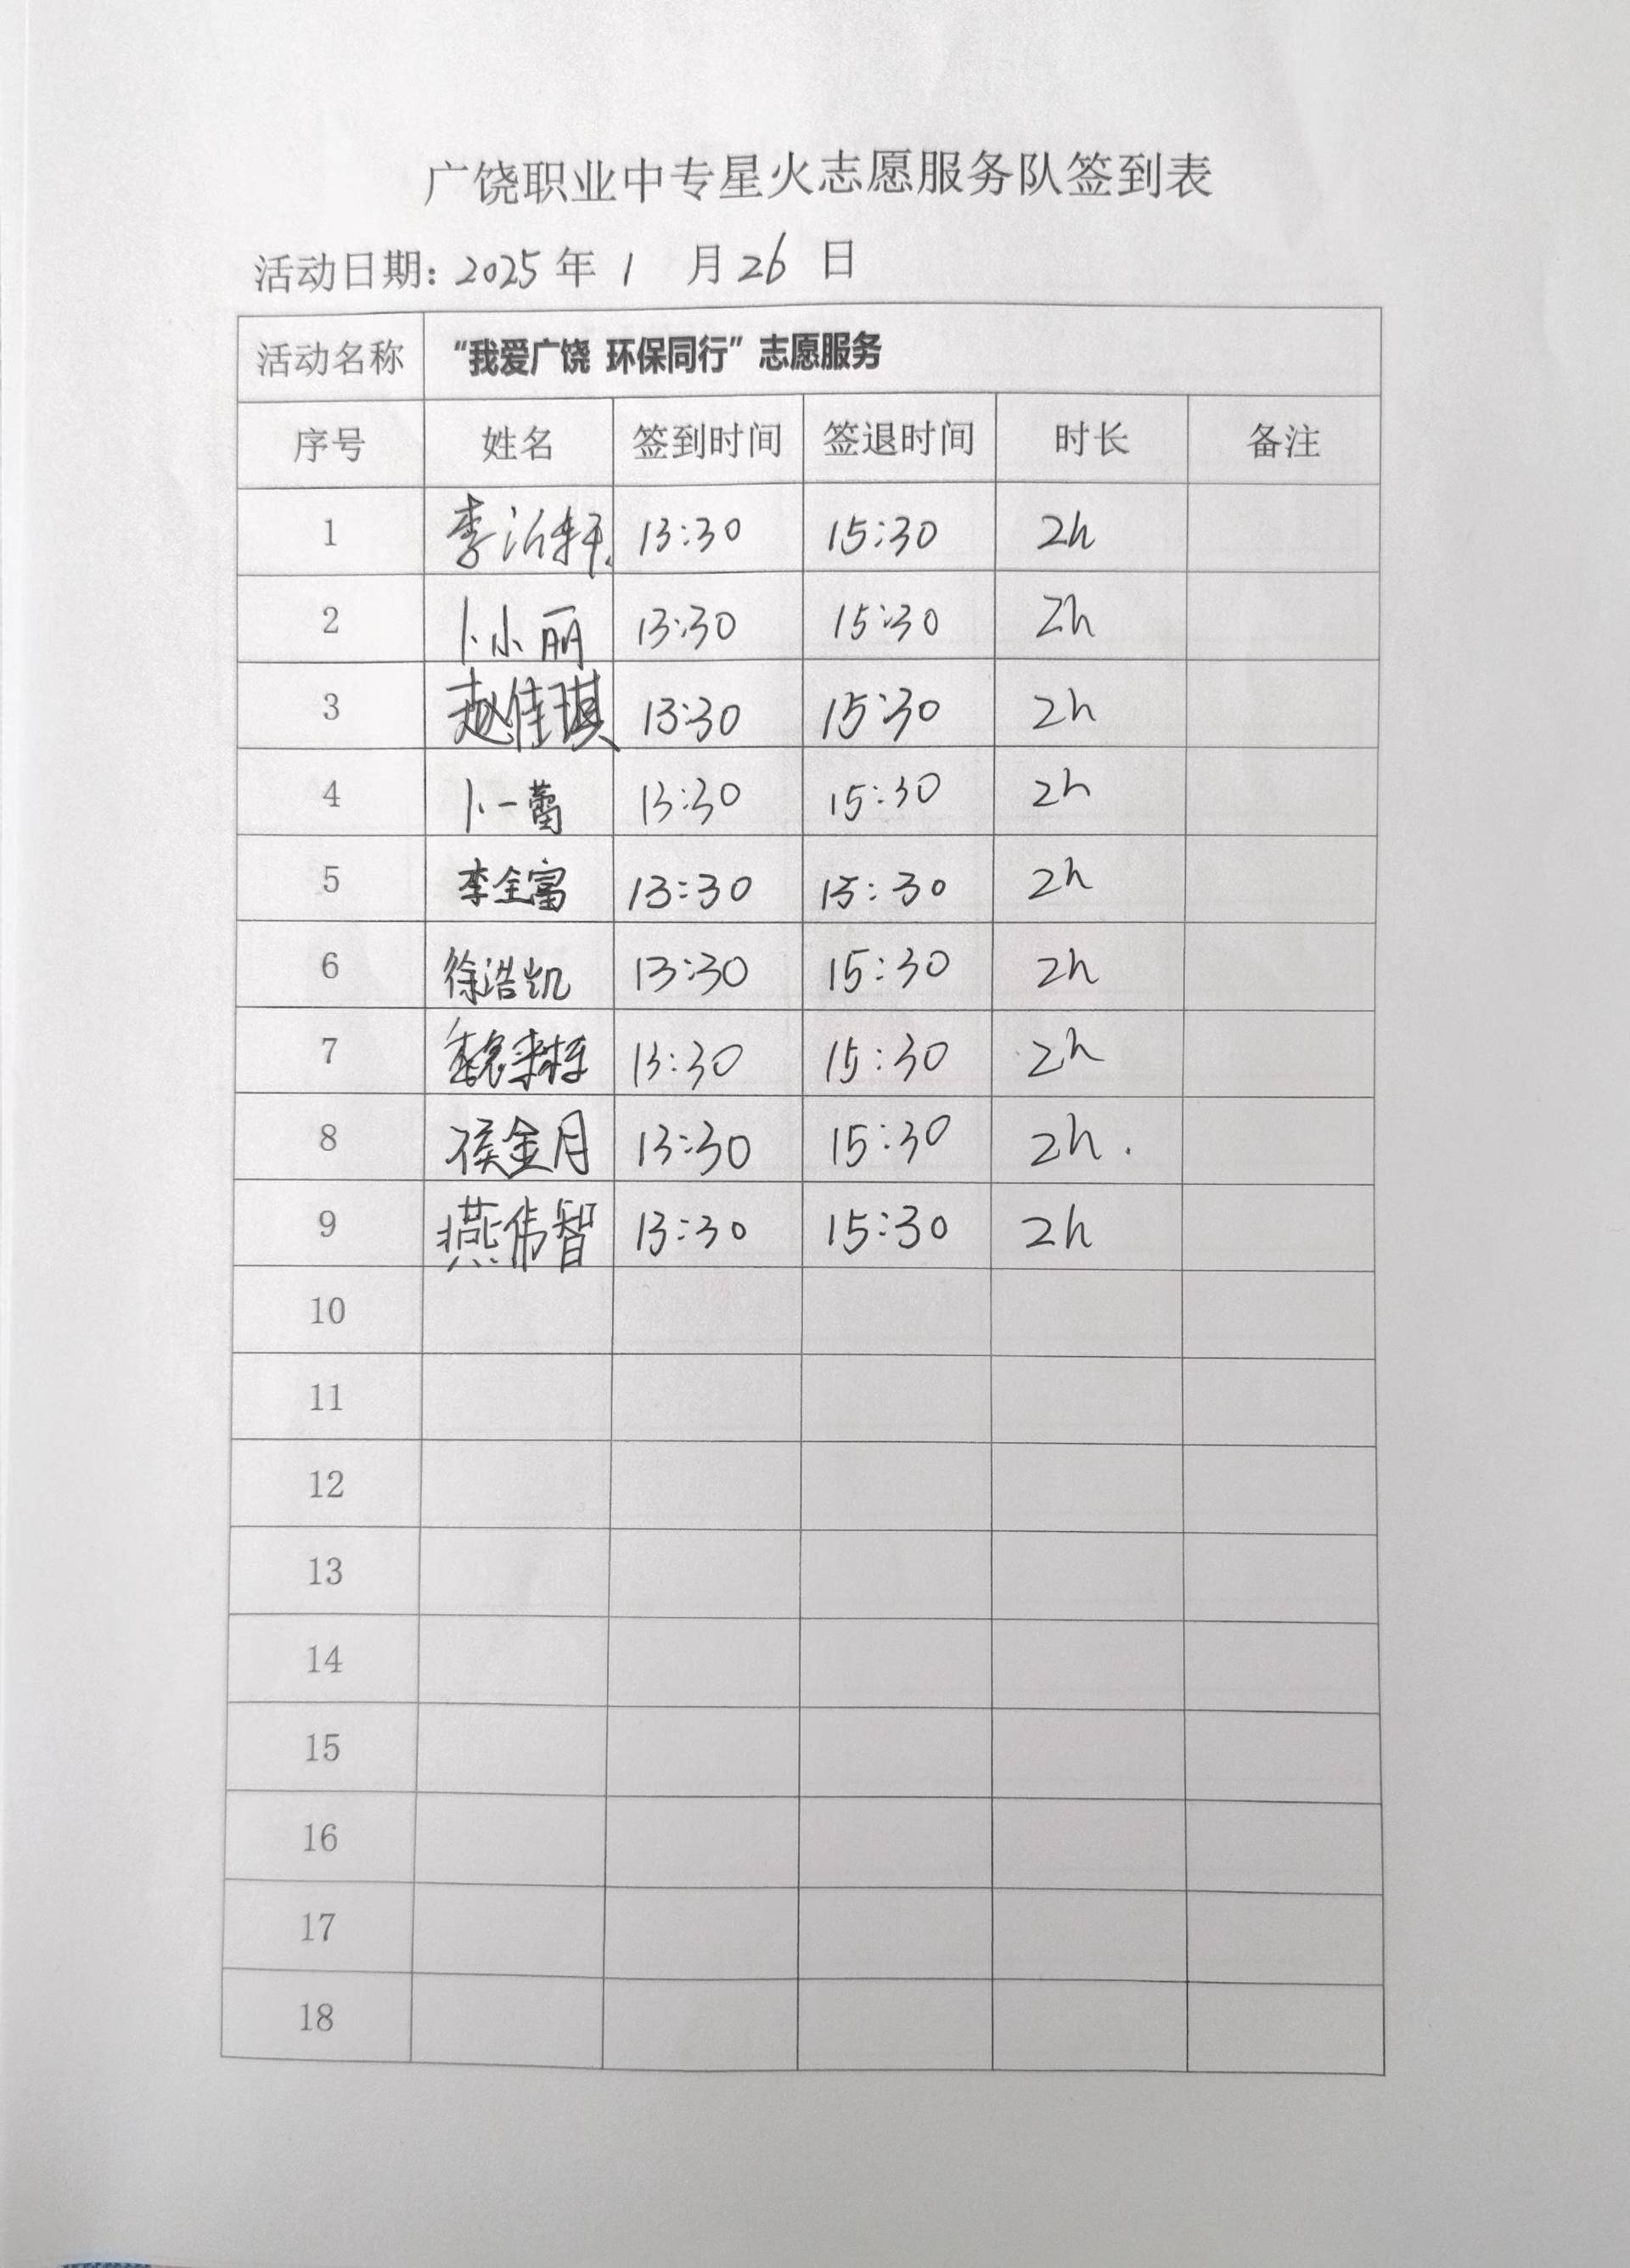 广饶职业中专星火志愿服务队签到表
活动日期: 2025 年 1 月 26 日
活动名称 “我爱广饶 环保同行”志愿服务
序号 姓名 签到时间 签退时间 时长 备注
1 李沂轩 13:30 15:30 2h
2 卜小丽 13:30 15:30 2h
3 赵佳琪 13:30 15:30 2h
4 卜一蕾 13:30 15:30 2h
5 李全富 13:30 15:30 2h
6 徐浩凯 13:30 15:30 2h
7 13:30 15:30 2h
8 侯金月 13:30 15:30 2h.
9 燕伟智 13:30 15:30 2h
10
11
12
13
14
15
16
17
18